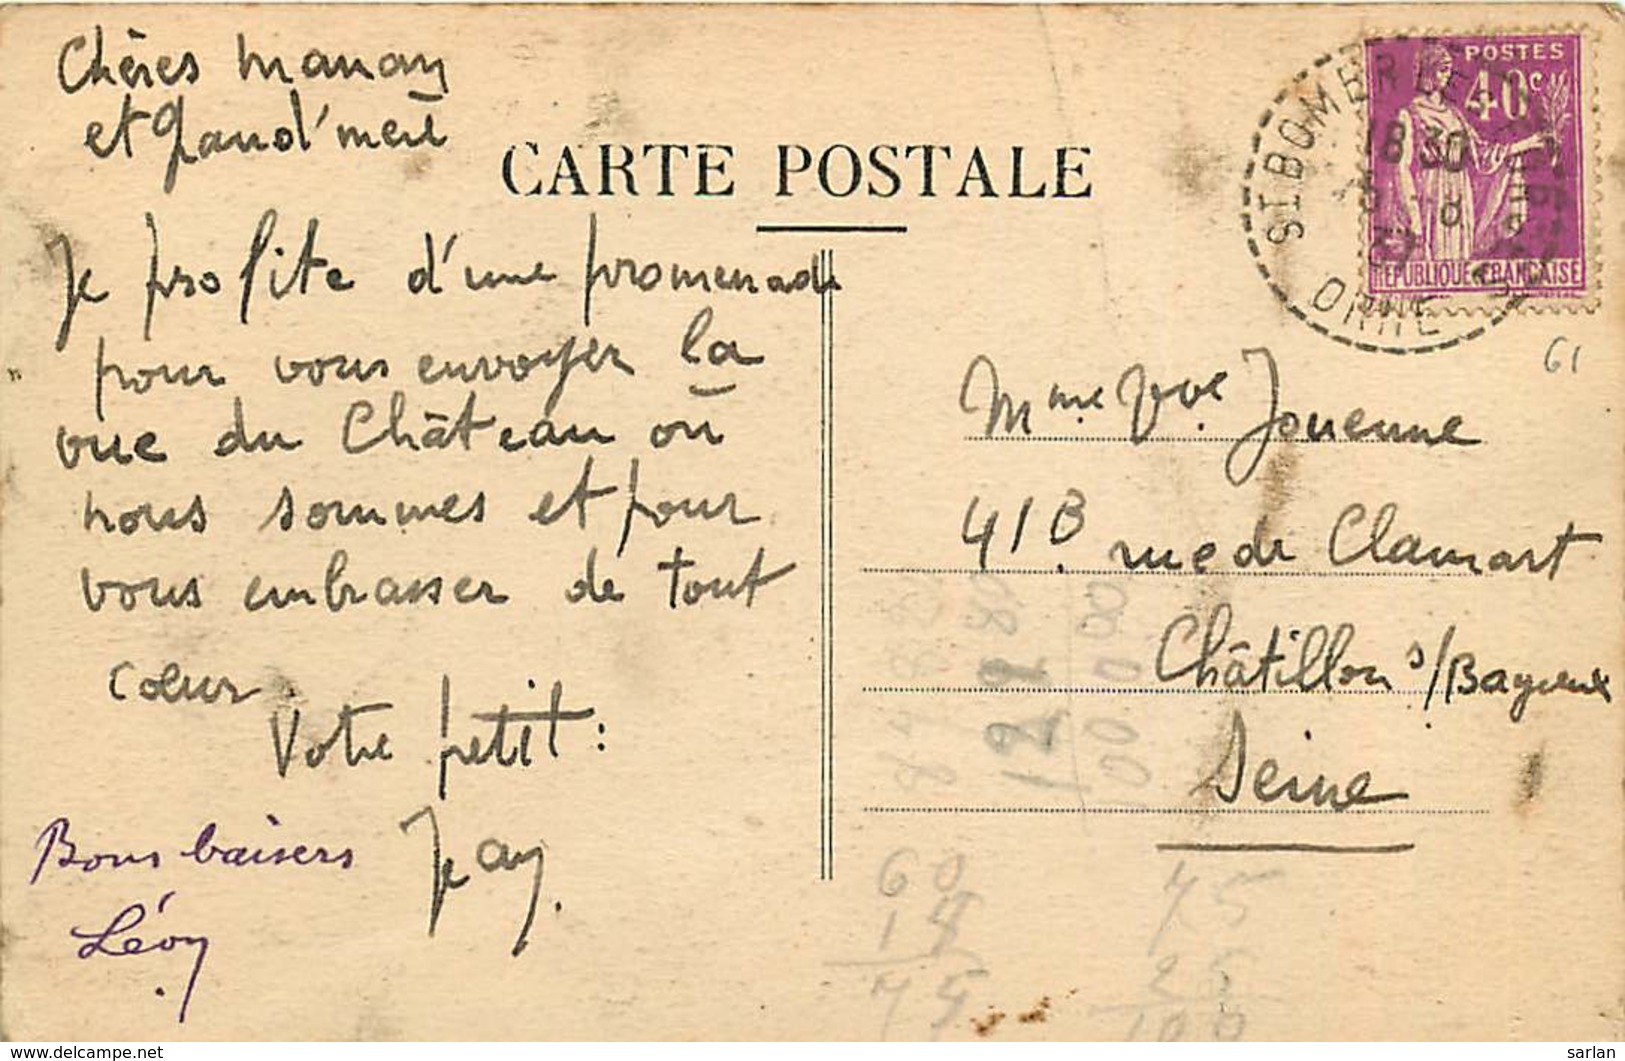 Chères maman
et Grand'mère
CARTE POSTALE
Je profite d'une promenade
pour vous envoyer la
vue du Château où
nous sommes et pour
vous embrasser de tout
coeur.
Votre petit:
Jean.
Bons baisers
Léon
POSTES
40c
RÉPUBLIQUE FRANÇAISE
St BOMER LES
18 30
8
37
ORNE
61
Mme Vve Jouenne
41B. rue de Clamart
Châtillon s/Bagneux
Seine
60
75
25
100
sarlan